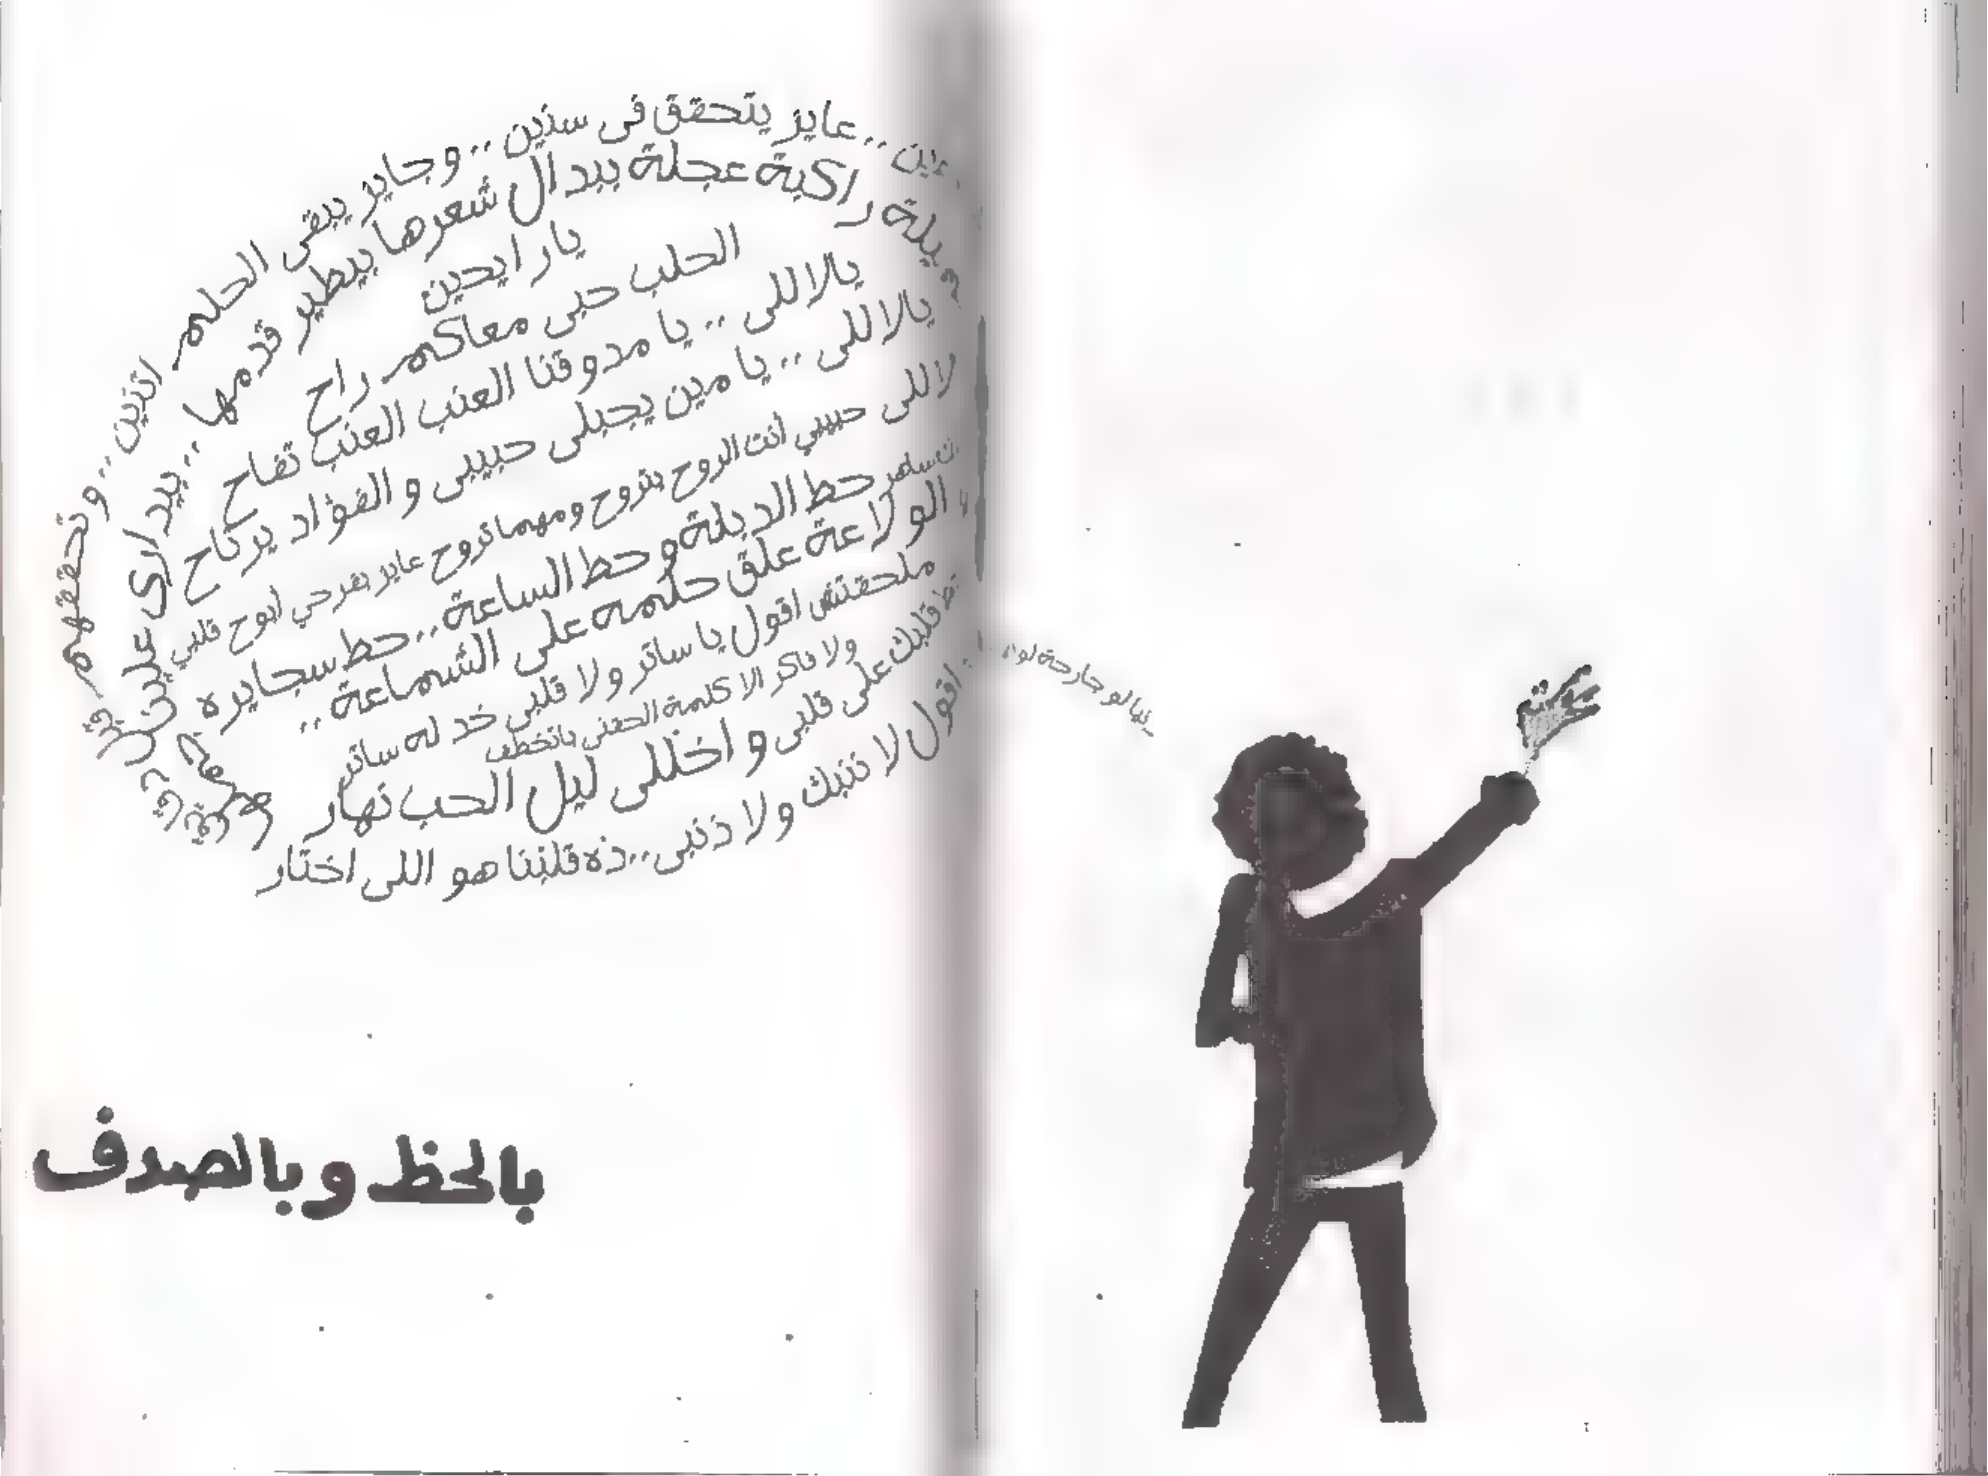 عايز يتحقق فى سنين .. وجايز يبقى الحلم اتنين .. وتحققهم
راكبة عجلة ببدال شعرها بيطير قدمها .. بيدارى علين
يار ايحين
الحلب حبى معاكم راح
يالاللى .. يا مدوقنا العنب العنب تفاح
يالاللى .. يا مين يجبلى حبيبى والفؤاد يرتاح
لاللى حبيبي انت الروح بتروح ومهما تروح عايز بفرحي ابوح قلبي
حط الدبلة وحط الساعة .. حط سجايره
الولاعة علق حلمه على الشماعة ..
ملحقتش اقول يا ساتر ولا قلبى خد له ساتر
ولا فاكر الا كلمة الحقنى باتخطف
قلبك على قلبى واخللى ليل الحب نهار
اقول لا ذنبك ولا ذنبى .. ده قلبنا هو اللى اختار
لو جارحة
بالحظ وبالصدف